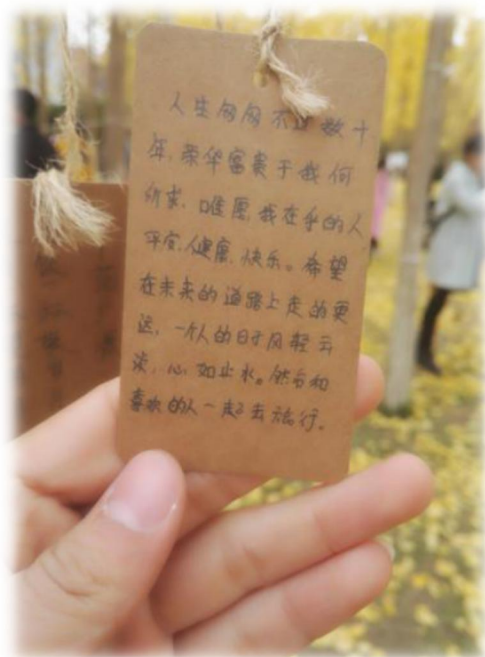 人生匆匆不过数十
年,荣华富贵于我何
所求,唯愿我在乎的人
平安、健康、快乐。希望
在未来的道路上走的更
远,一个人的日子风轻云
淡,心如止水。然后和
喜欢的人一起去旅行。